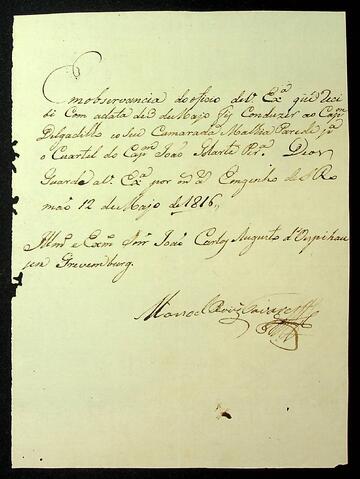 Em observancia do oficio de V. Exª que Receci
bi Com adata de 3 de Majo fiz Conduzer ao Capm
Delgadillo e o seu Camarada Mathia Paredes pª
o Cuartel do Capm João Pirª. Deos
Guarde a V. Exª por mˢ aˢ Emgenho de S. Ro
mão 12 de Majo de 1816,,
Illmº e Exmº Snr João Carlos Augusto d'Oeynhau
sen Grevemburg.
Manoel Roiz Tavares